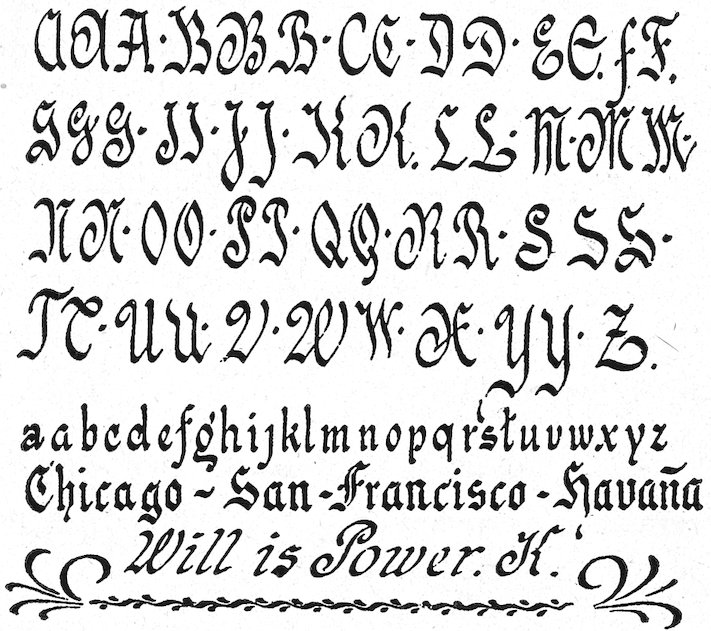 A A A · B B B · C C · D D · E E. f F.
G G G · I I · J J · K K. L L · M · M M ·
N N · O O · P P · Q Q · R R · S S S ·
T T · U U · V · W W · X · Y Y · Z.
a a b c d e f g h i j k l m n o p q r s t u v w x y z
Chicago ~ San - Francisco - Havaña
Will is Power. K.